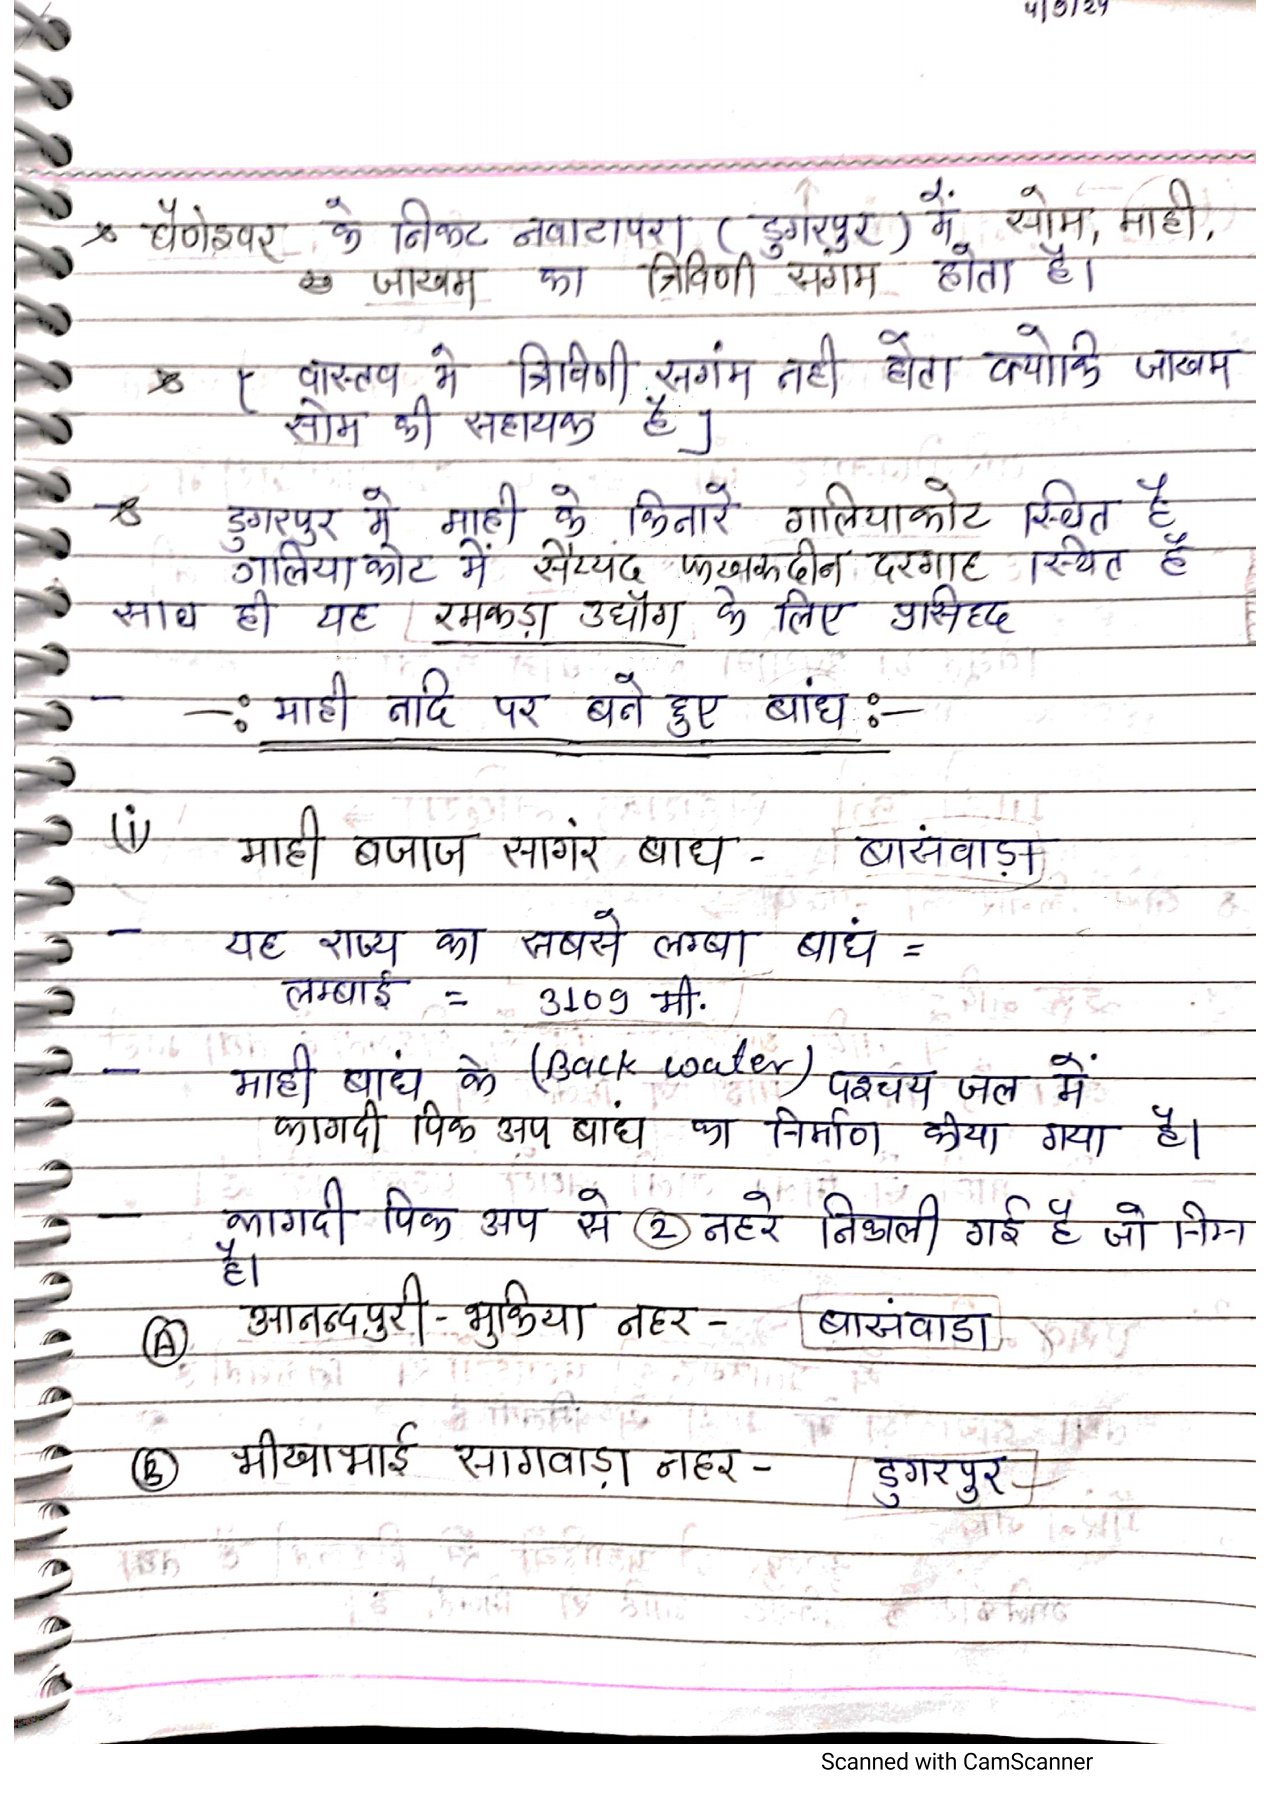 4/9/24
* बैणेश्वर के निकट नवाटापरा (डुगंरपुर) में सोम, माही,
जाखम का त्रिविणी संगम होता है।
* [ वास्तव मे त्रिविणी सगंम नही होता क्योकि जाखम
सोम की सहायक है ]
* डुगरपुर मे माही के किनारे गालियाकोट स्थित है
गलियाकोट में सैय्यद फखरूदीन दरगाह स्थित है
साथ ही यह रमकड़ा उद्योग के लिए प्रसिद्द
-: माही नदि पर बने हुए बांध :-
(i) माही बजाज सागंर बाध - बासंवाड़ा
- यह राज्य का सबसे लम्बा बाधं =
लम्बाई = 3109 मी.
- माही बाधं के (Back water) पश्चय जल में
कागदी पिक अप बांध का निर्माण कीया गया है।
- कागदी पिक अप से 2 नहरे निकाली गई है जो निम्न
है।
A आनन्दपुरी - भुकिया नहर - बासंवाडा
B भीखाभाई सागवाड़ा नहर - डुगरपुर
Scanned with CamScanner